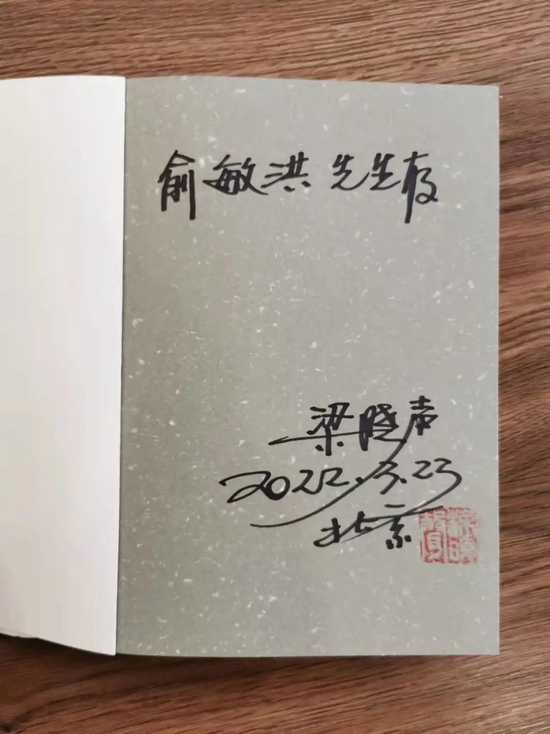 俞敏洪先生存
梁晓声
2022.3.23
北京